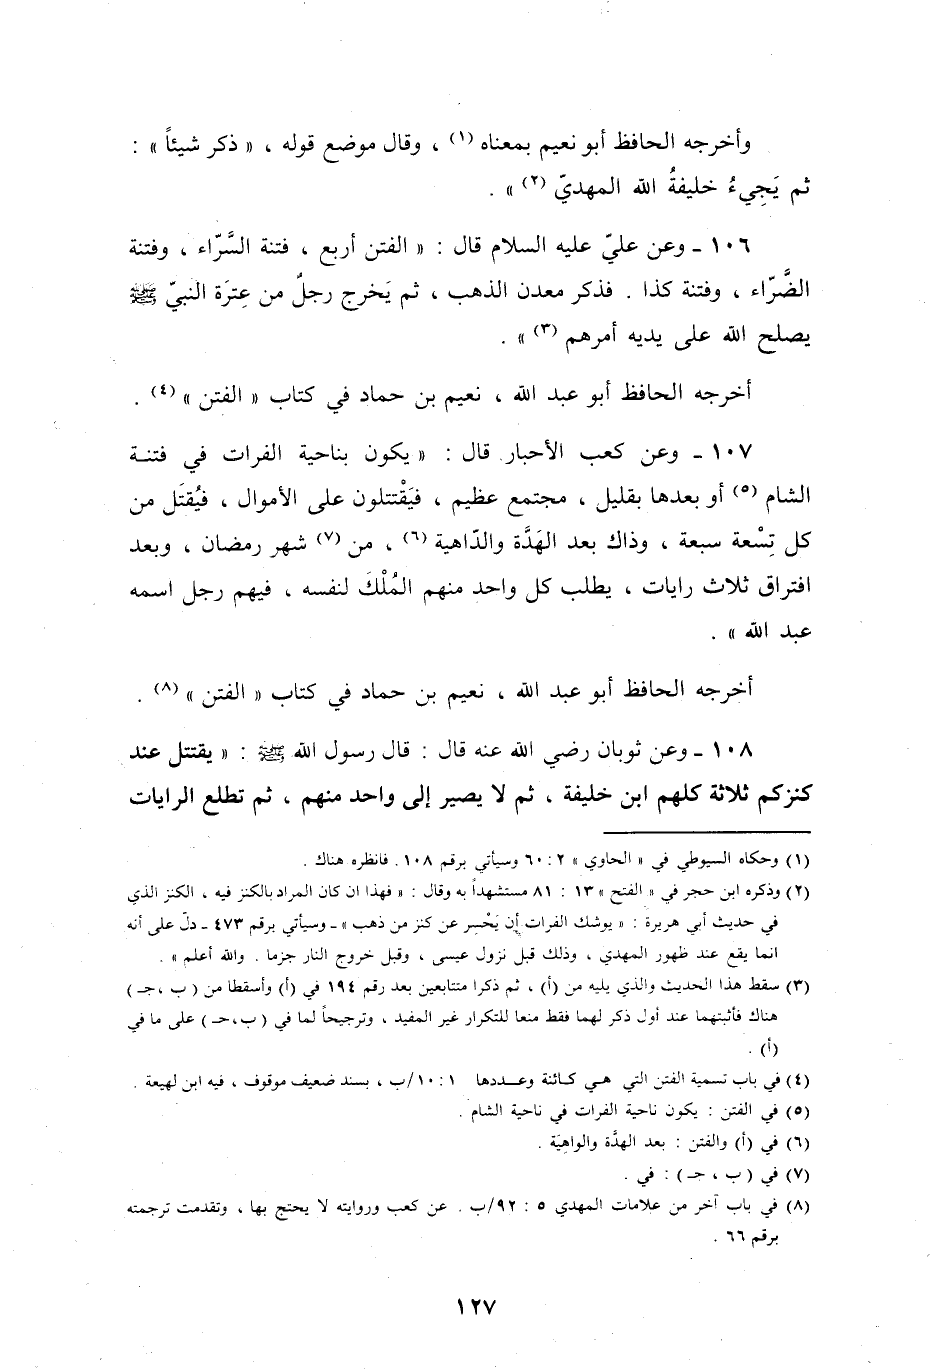 وأخرجه الحافظ أبو نعيم بمعناه (١) ، وقال موضع قوله ، « ذكر شيئاً » :
ثم يَجِيءُ خليفةُ الله المهديّ (٢) » .
١٠٦ ـ وعن عليّ عليه السلام قال : « الفتن أربع ، فتنة السَّرّاء ، وفتنة
الضَّرّاء ، وفتنة كذا . فذكر معدن الذهب ، ثم يَخرج رجلٌ من عِترَة النبيّ ﷺ
يصلح الله على يديه أمرهم (٣) » .
أخرجه الحافظ أبو عبد الله ، نعيم بن حماد في كتاب « الفتن » (٤) .
١٠٧ ـ وعن كعب الأحبار قال : « يكون بناحية الفرات في فتنة
الشام (٥) أو بعدها بقليل ، مجتمع عظيم ، فيَقْتتلون على الأموال ، فيُقتَل من
كل تِسْعة سبعة ، وذاك بعد الهَدَّة والدّاهية (٦) ، من (٧) شهر رمضان ، وبعد
افتراق ثلاث رايات ، يطلب كل واحد منهم المُلْكَ لنفسه ، فيهم رجل اسمه
عبد الله » .
أخرجه الحافظ أبو عبد الله ، نعيم بن حماد في كتاب « الفتن » (٨) .
١٠٨ ـ وعن ثوبان رضي الله عنه قال : قال رسول الله ﷺ : « يقتتل عند
كنزكم ثلاثة كلهم ابن خليفة ، ثم لا يصير إلى واحد منهم ، ثم تطلع الرايات
(١) وحكاه السيوطي في « الحاوي » ٢ : ٦٠ وسيأتي برقم ١٠٨ . فانظره هناك .
(٢) وذكره ابن حجر في « الفتح » ١٣ : ٨١ مستشهداً به وقال : « فهذا ان كان المراد بالكنز فيه ، الكنز الذي
في حديث أبي هريرة : « يوشك الفرات أن يَحْسر عن كنز من ذهب » ـ وسيأتي برقم ٤٧٣ ـ دلّ على أنه
انما يقع عند ظهور المهدي ، وذلك قبل نزول عيسى ، وقبل خروج النار جزما . والله أعلم » .
(٣) سقط هذا الحديث والذي يليه من (أ) ، ثم ذكرا متتابعين بعد رقم ١٩٤ في (أ) وأسقطا من ( ب ، جـ )
هناك فأثبتهما عند أول ذكر لهما فقط منعا للتكرار غير المفيد ، وترجيحاً لما في ( ب،حـ ) على ما في
(أ) .
(٤) في باب تسمية الفتن التي هي كائنة وعددها ١ : ١٠/ب ، بسند ضعيف موقوف ، فيه ابن لهيعة .
(٥) في الفتن : يكون ناحية الفرات في ناحية الشام .
(٦) في (أ) والفتن : بعد الهدَّة والواهيَة .
(٧) في ( ب ، جـ ) : في .
(٨) في باب آخر من علامات المهدي ٥ : ٩٢/ب . عن كعب وروايته لا يحتج بها ، وتقدمت ترجمته
برقم ٦٦ .
١٢٧